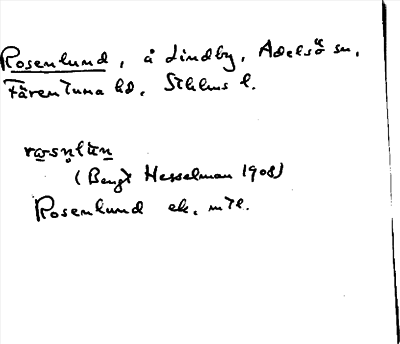 Rosenlund, å Lindby, Adelsö sn,
Färentuna hd, Sthlms l.
rosnlun
(Bengt Hesselman 1908)
Rosenlund ek. mtl.